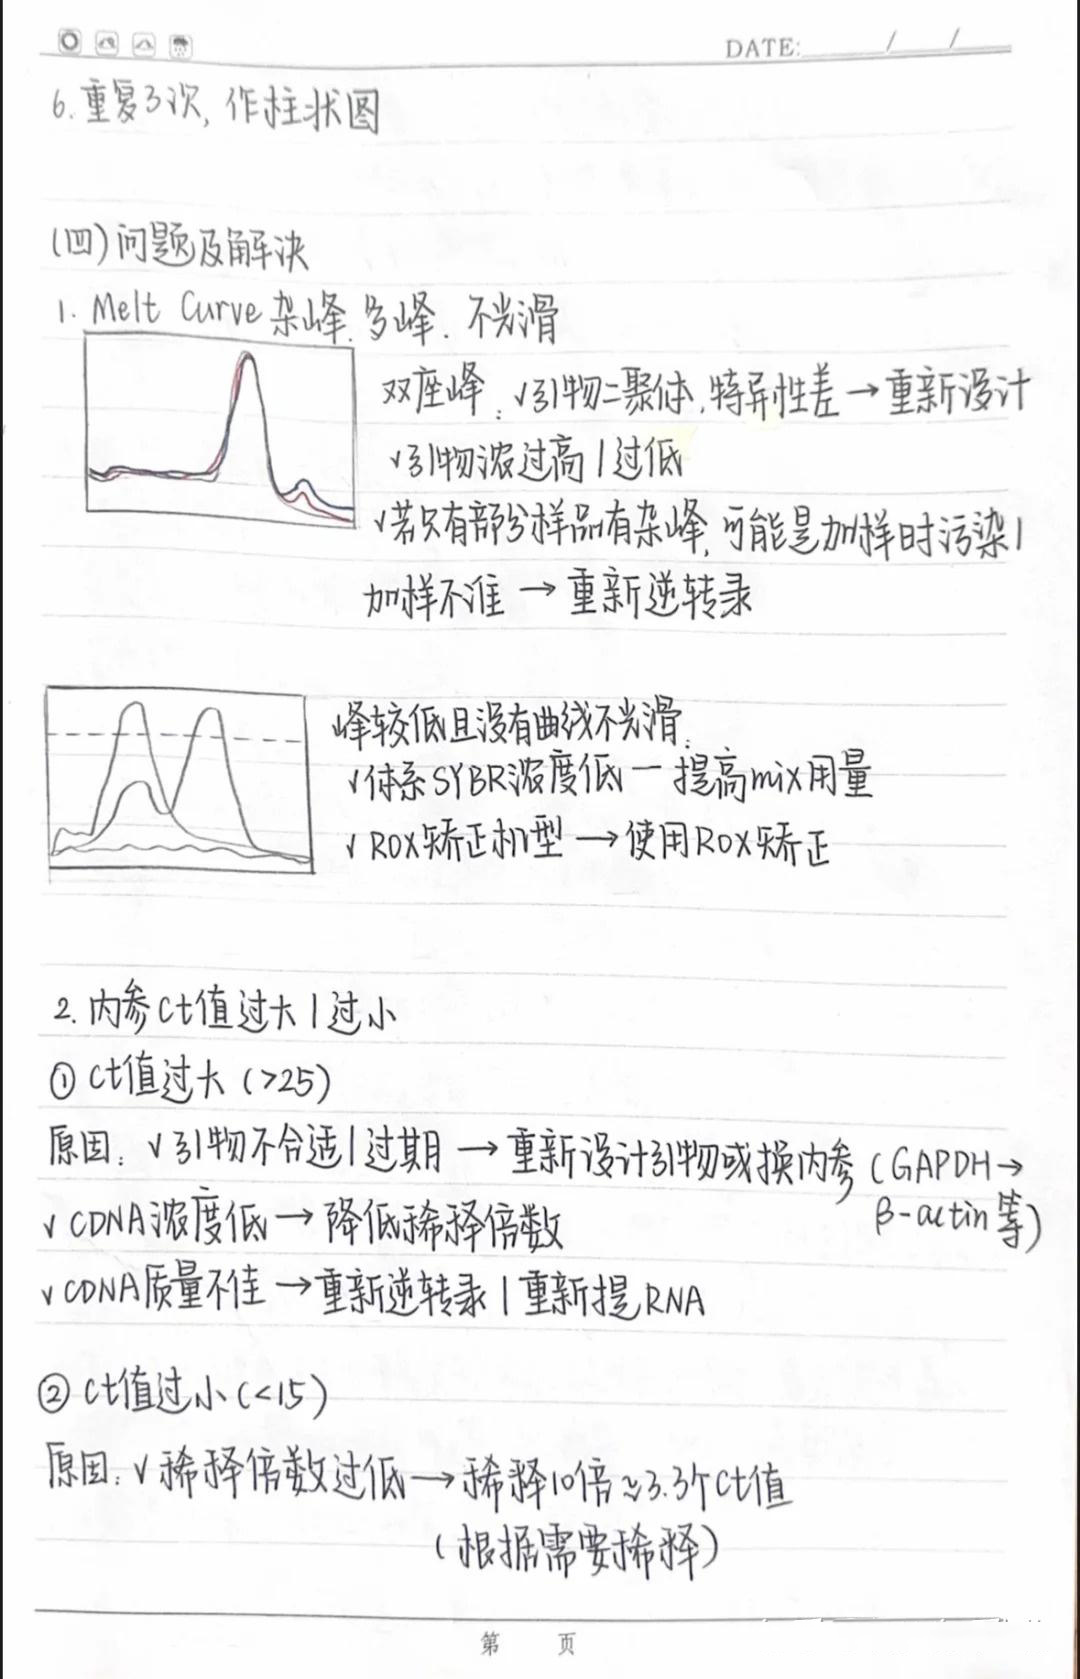 DATE: / /
6.重复3次,作柱状图
(四)问题及解决
1. Melt Curve杂峰.多峰.不光滑
双座峰:√引物二聚体,特异性差→重新设计
√引物浓过高/过低
√若只有部分样品有杂峰,可能是加样时污染/
加样不准→重新逆转录
峰较低且没有曲线不光滑:
√体系SYBR浓度低—提高mix用量
√ROX矫正机型→使用ROX矫正
2.内参Ct值过大/过小
①Ct值过大(>25)
原因:√引物不合适/过期→重新设计引物或换内参(GAPDH→
β-actin等)
√CDNA浓度低→降低稀释倍数
√CDNA质量不佳→重新逆转录/重新提RNA
②Ct值过小(<15)
原因:√稀释倍数过低→稀释10倍≈3.3个Ct值
(根据需要稀释)
第 页